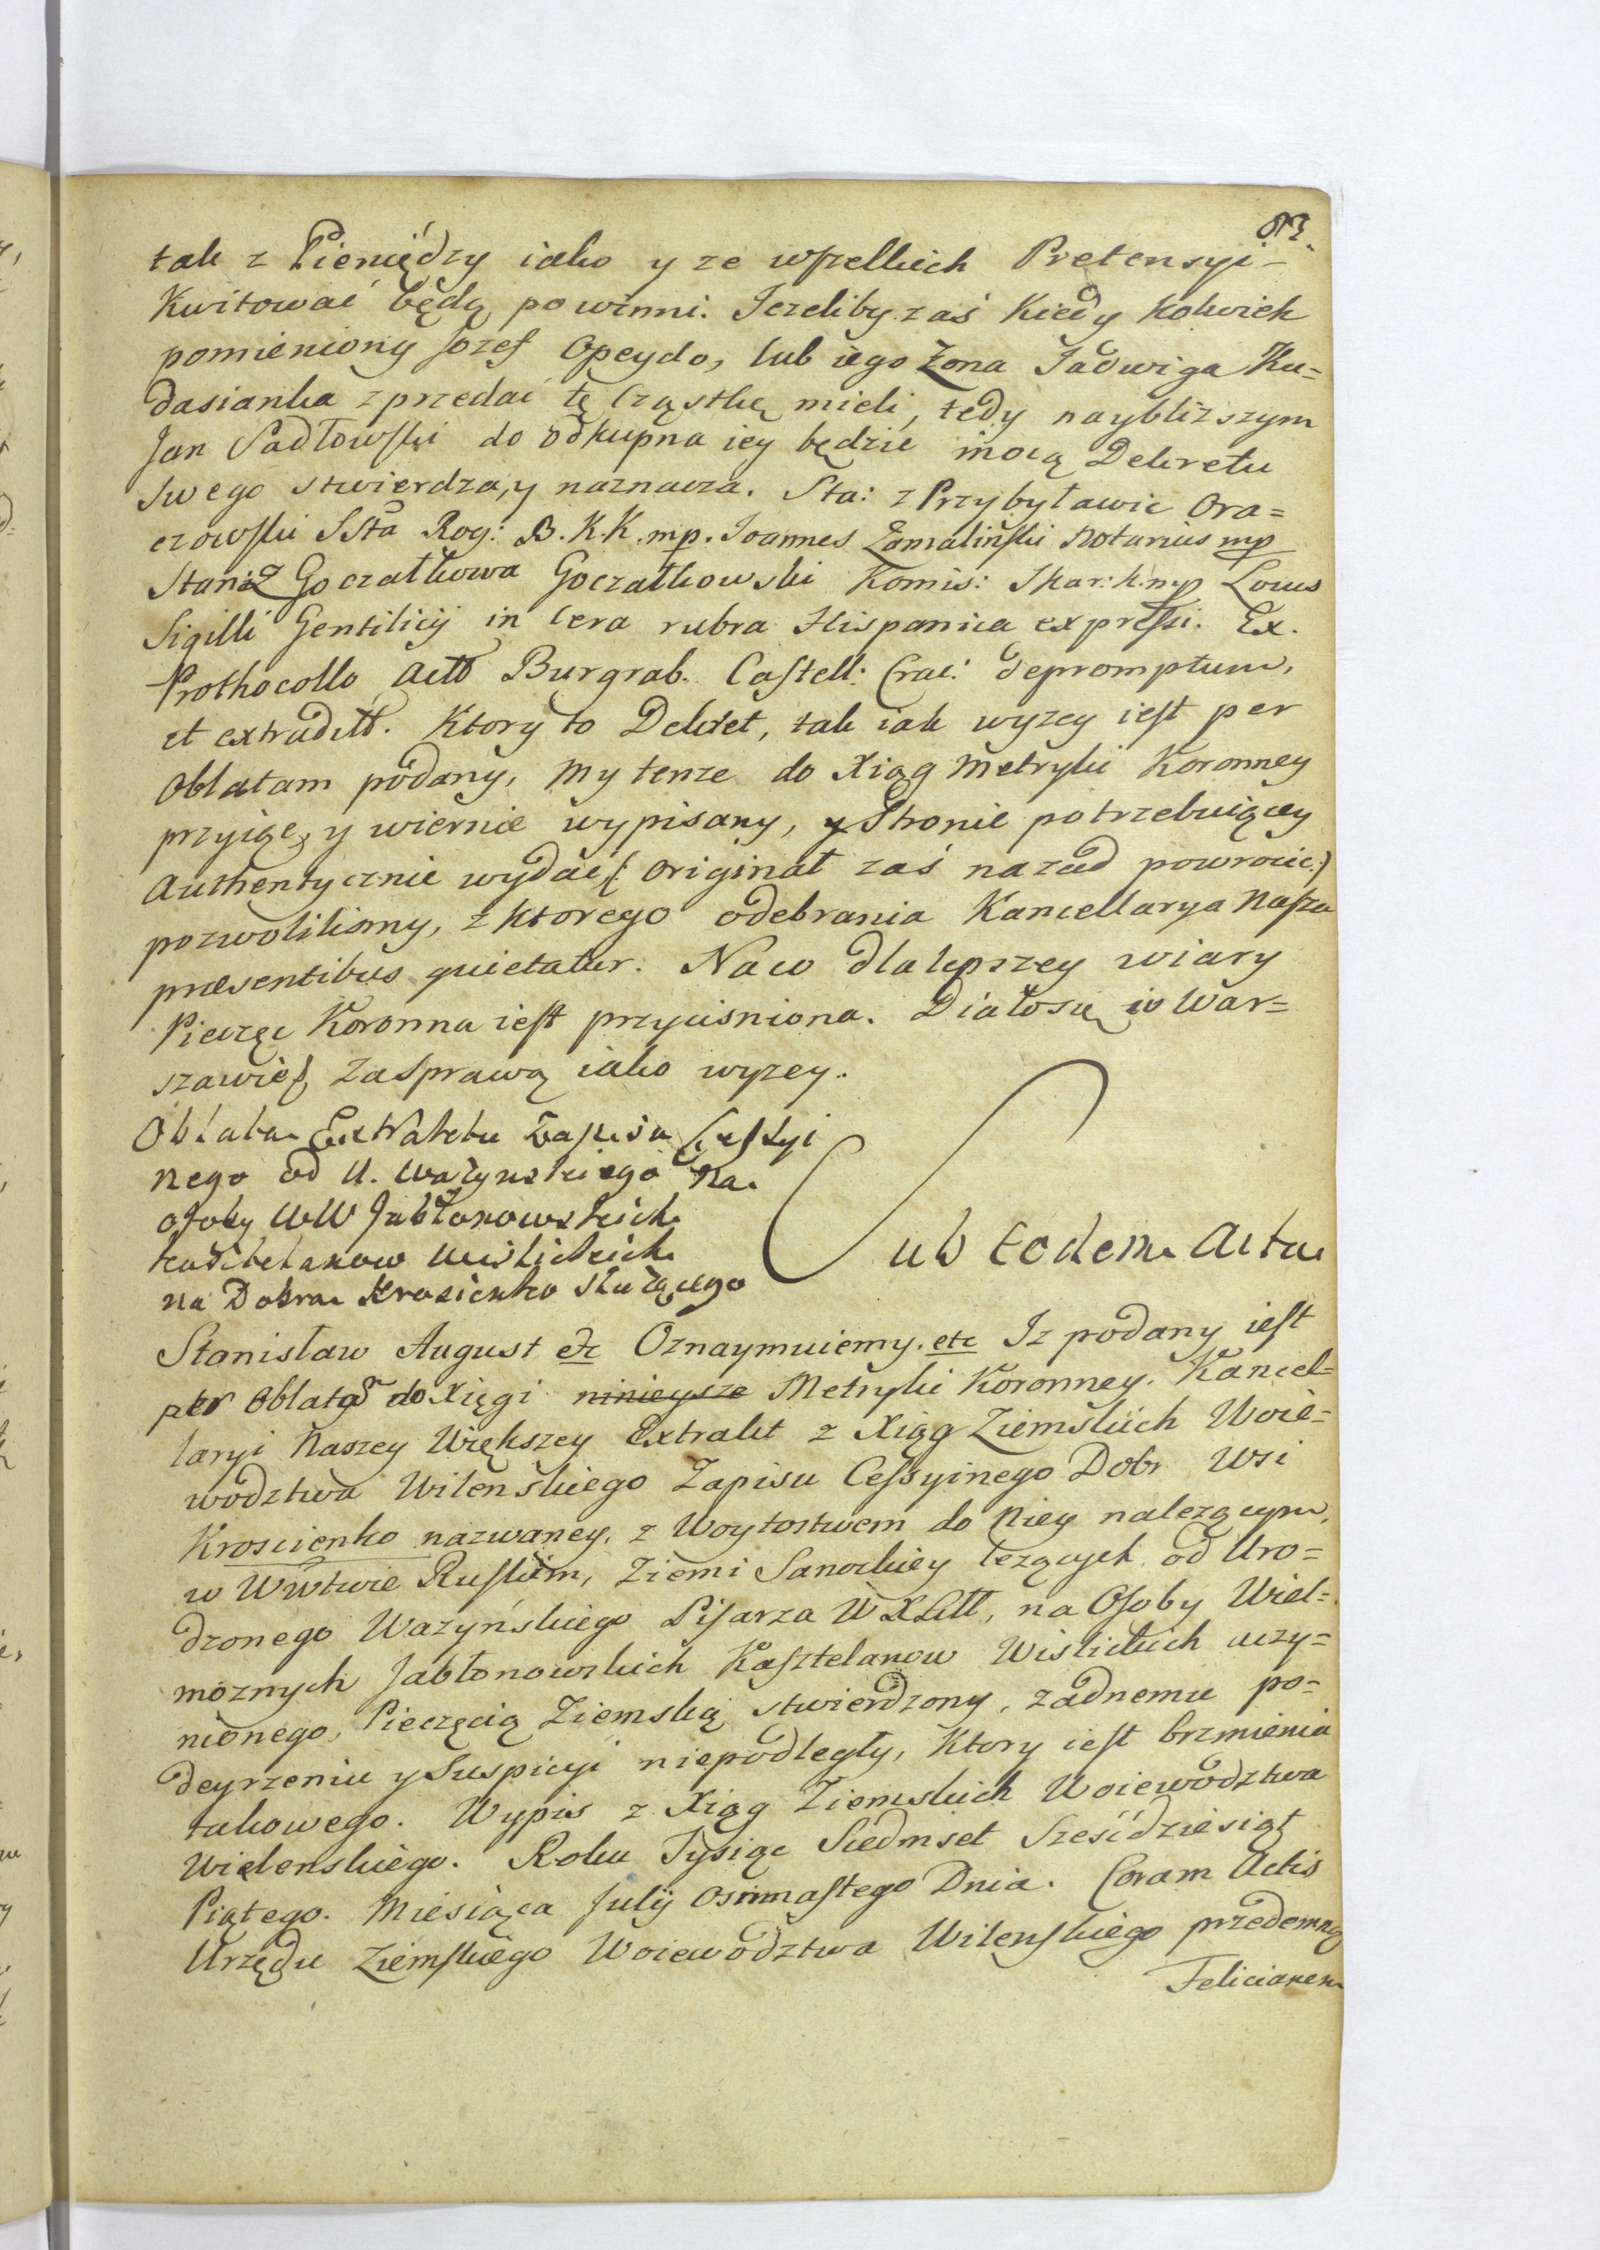 83.
tak z Pieniędzy iako y ze wszelkich Pretensyi
Kwitować będą powinni. Jezeliby zaś Kiedy Kolwiek
pomieniony Jozef Opeydo, lub iego Żona Jadwiga Ku=
dasianka zprzedać tę Cząstkę mieli, tedy naybliższym
Jan Sadłowski do odkupna iey będzie mocą Dekretu
swego stwierdza, y naznacza. Sta: z Przybyławic Ora=
czowski SSta Rog: B. K. K. mp. Joannes Zamaliński Notarius mp
Stan: z Goczałkowa Goczałkowski Komis: Skar: K. mp Locus
Sigilli Gentilicij in Cera rubra Hispanica expressi. Ex.
Prothocollo Actõ Burgrab. Castell: Crac: depromptum,
et extradittõ. Ktory to Dekret, tak iak wyzey iest per
Oblatam pódany, my tenze do Xiąg Metryki Koronney
przyiąc, y wiernie wypisany, y Stronie potrzebuiącey
Authentycznie wydać (Originał zaś nazad powrocic:)
pozwolilismy, z ktorego odebrania Kancellarya Nasza
præsentibus quietatur. Naco dla lepszey wiary
Pieczęc Koronna iest przycisniona. Działosię w War=
szawie, Zasprawą iako wyzey.
Oblata Extraktu Zapisu Cessyi
nego od U. Ważynskiego na
osoby WW Jabłonowskich
Kasztelanow Wislickich
na Dobra Krosienko służącego
Sub Eodem Actu
Stanisław August etc Oznaymuiemy. etc Iz podany iest
per Oblatã do Xięgi ninieysze Metryki Koronney. Kancel=
laryi Naszey Większey Extrakt z Xiąg Ziemskich Woie=
wodztwa Wilenskiego Zapisu Cessyinego Dobr Wsi
Kroscienko nazwaney, z Woytostwem do Niey nalezącym,
w Wwtwie Ruskim, Ziemi Sanockiey lezących od Uro=
dzonego Wazyńskiego Pisarza W X Litt, na Osoby Wiel=
moznych Jabłonowskich Kasztelanow Wislickich uczy=
nionego, Pieczęcią Ziemską stwierdzony, zadnemu po=
deyrzeniu y Suspicyi niepodległy, Ktory iest brzmienia
takowego. Wypis z Xiąg Ziemskich Woiewodztwa
Wielenskiego. Roku Tysiąc Siedmset Sześćdziesiąt
Piątego. Miesiąca Julij Osmnastego Dnia. Coram Actis
Urzędu Ziemskiego Woiewodztwa Wilenskiego przedemną
Felicianem